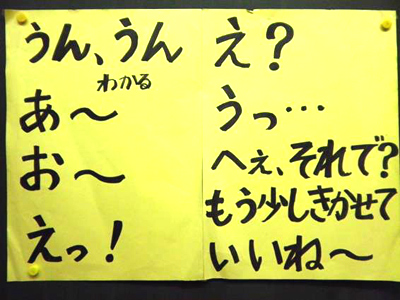 うん、うん
わかる
あ〜
お〜
えっ!
え?
うっ…
へぇ、それで?
もう少しきかせて
いいね〜